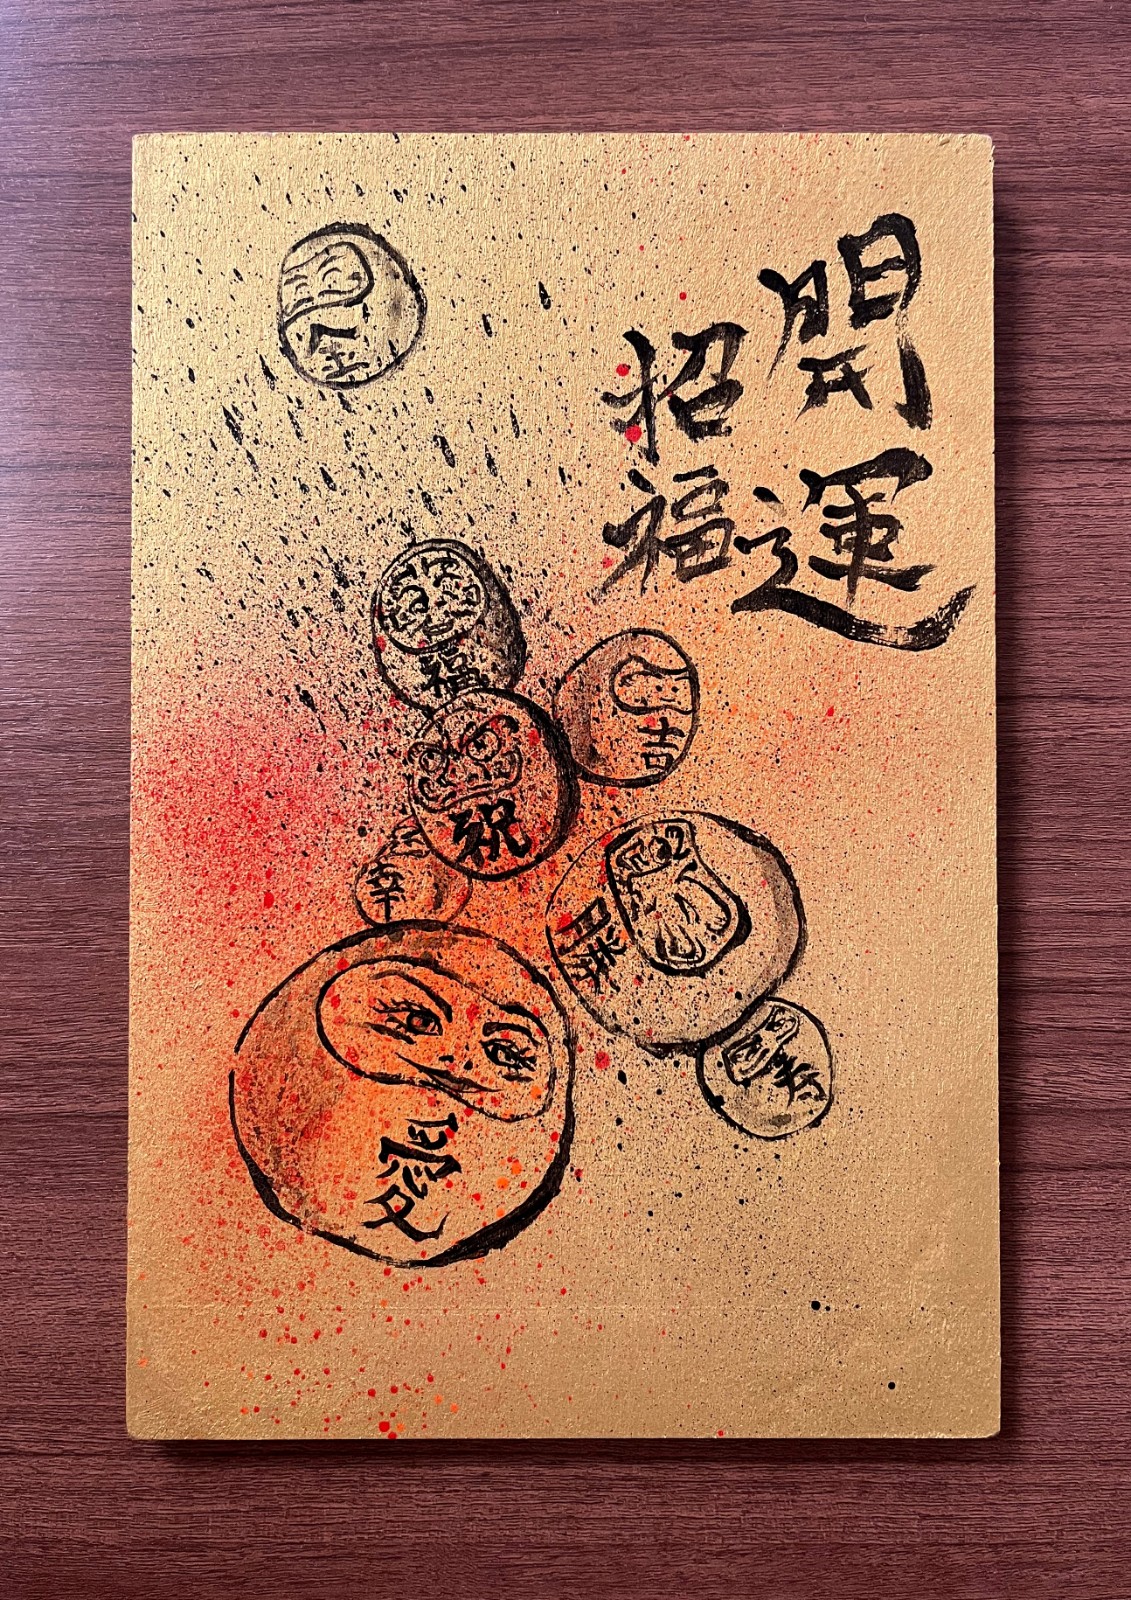 開運
招福
福
吉
祝
幸
勝
寿
愛